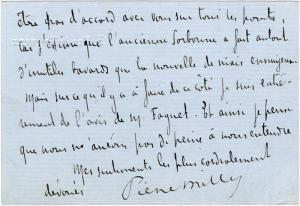 être pas d'accord avec vous sur tous les points,
car j'estime que l'ancienne Sorbonne a fait autant
d'inutiles bavards que la nouvelle de niais ennuyeux.
Mais sur ce qu'il y a à faire de ce côté je suis entiè-
rement de l'avis de M. Faguet. Et ainsi je pense
que nous n'aurons pas de peine à nous entendre
Mes sentiments les plus cordialement
dévoués
Pierre Mille